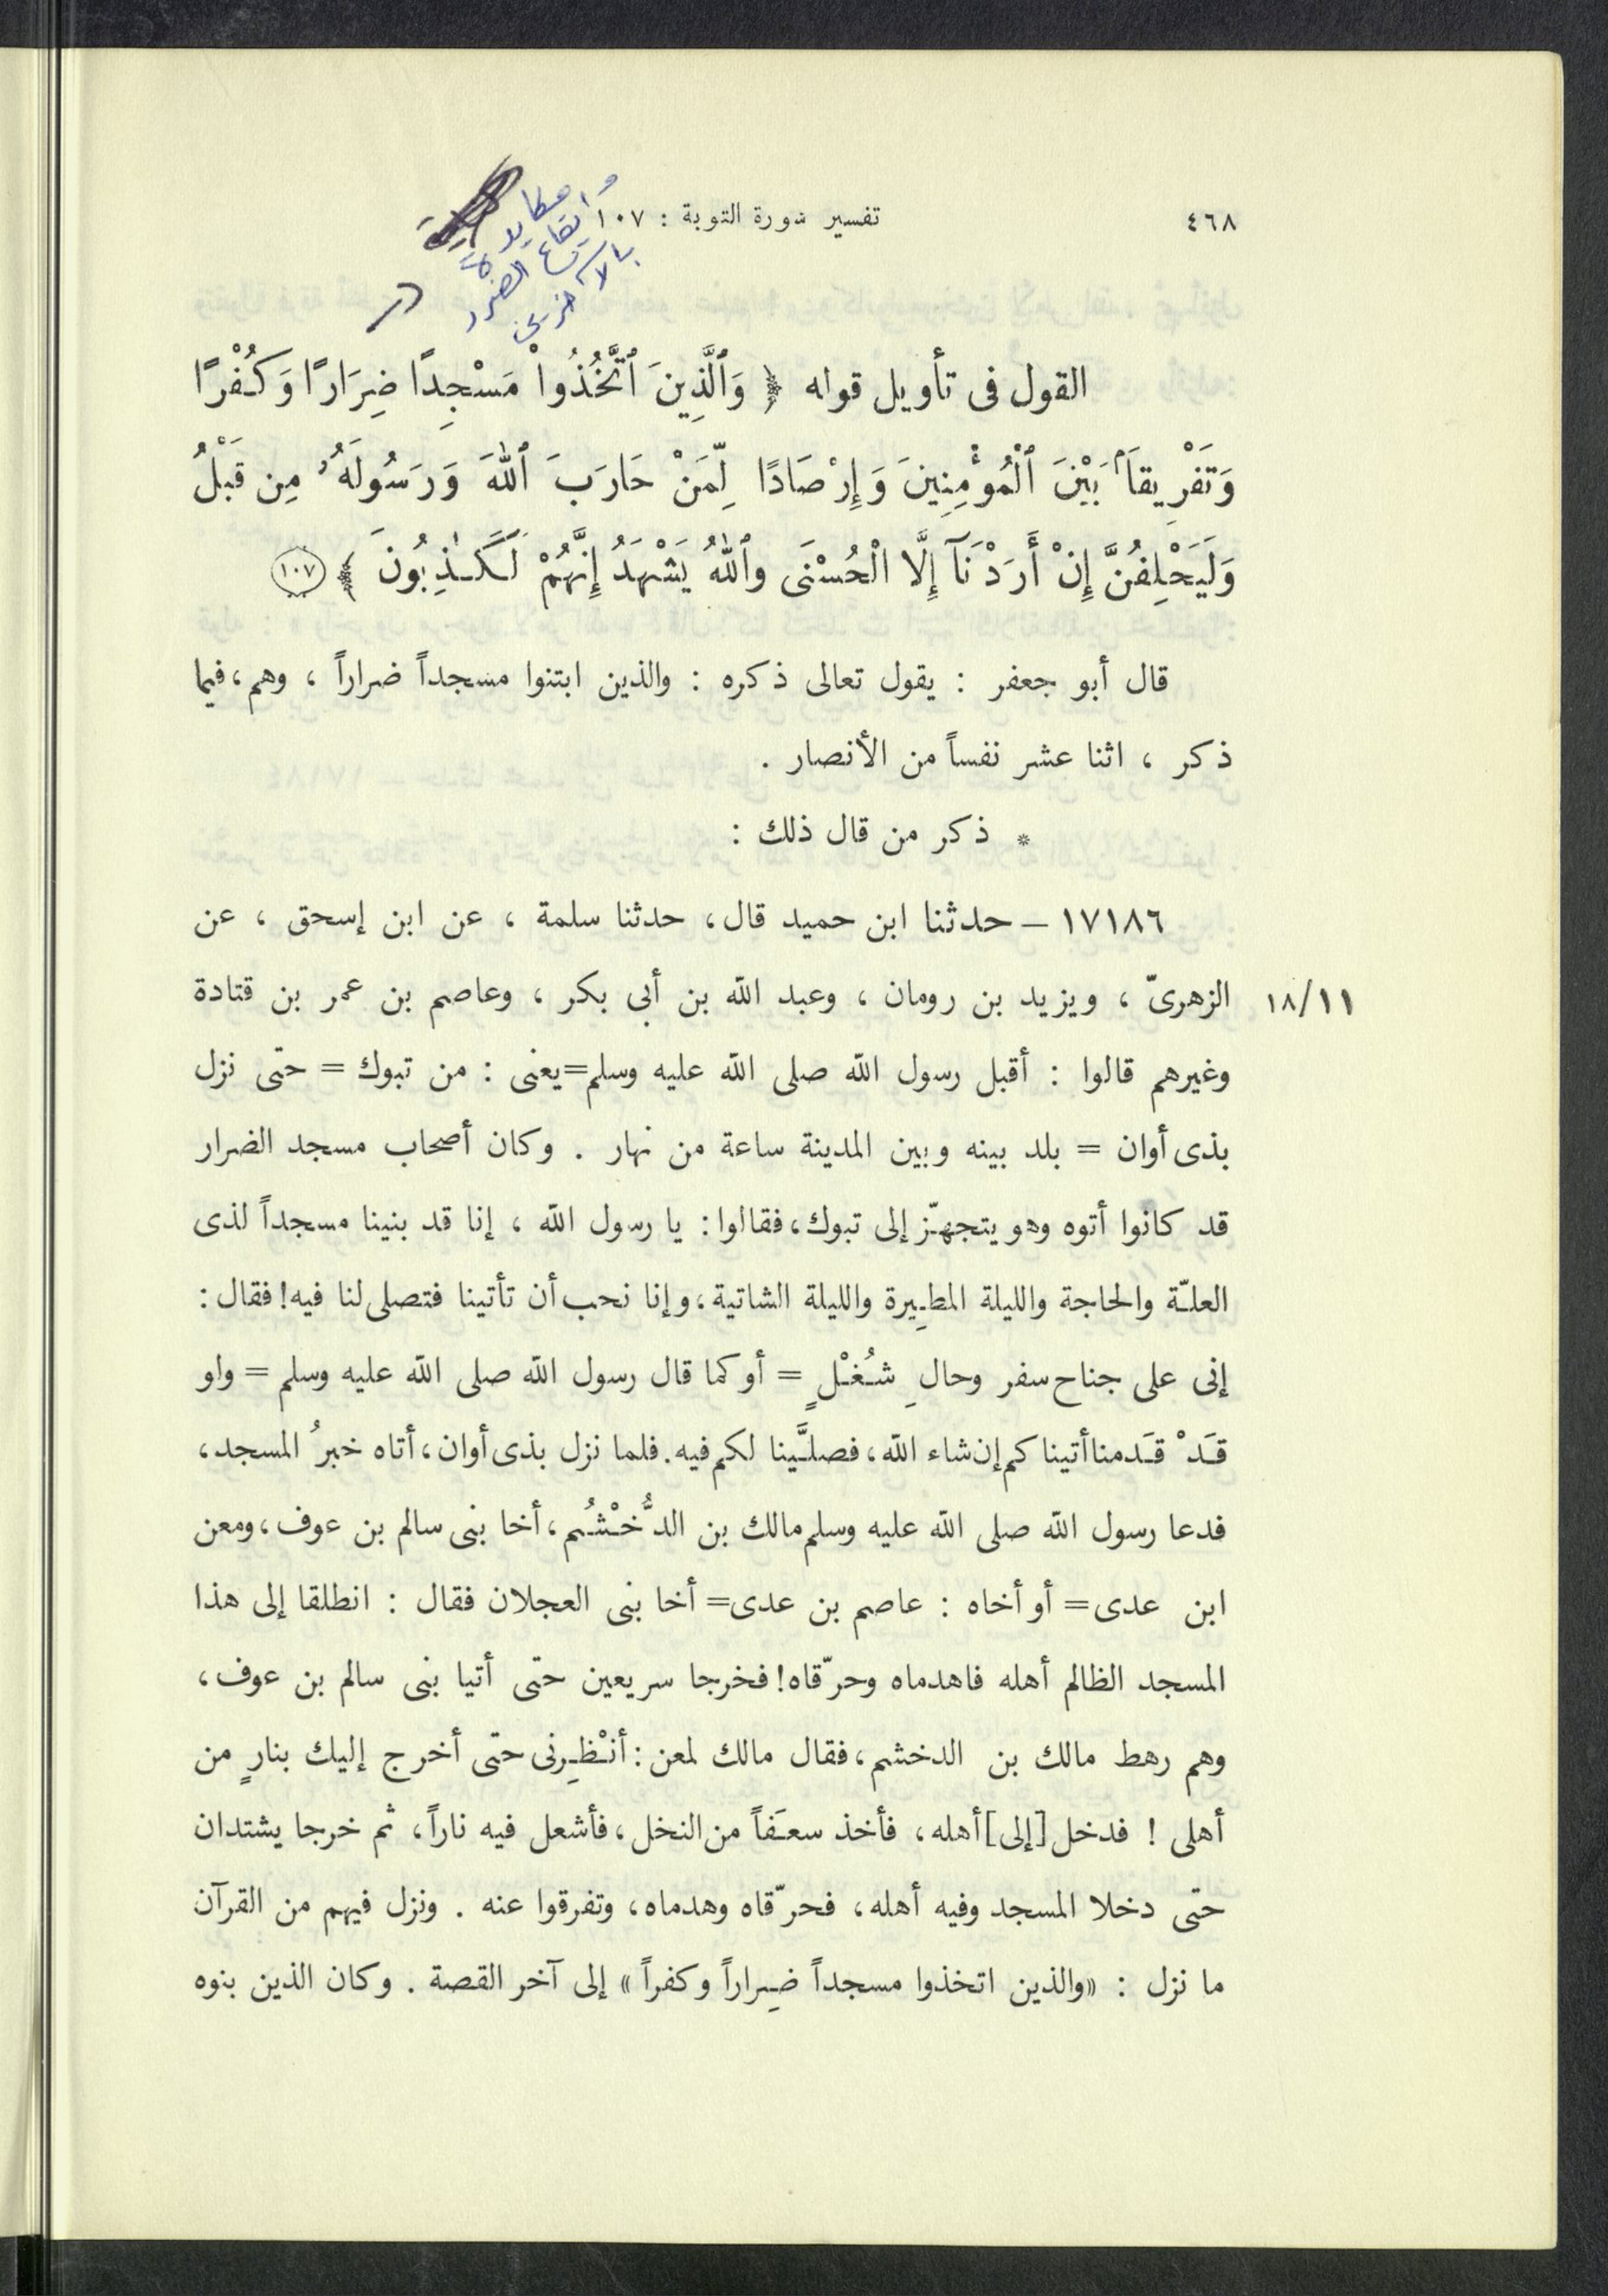 ٤٦٨
تفسير سورة التوبة : ١٠٧
أو إيقاع الضرر
بالآخرين
القول فى تأويل قوله ﴿ وَٱلَّذِينَ ٱتَّخَذُوا۟ مَسْجِدًا ضِرَارًا وَكُفْرًا
وَتَفْرِيقَاۢ بَيْنَ ٱلْمُؤْمِنِينَ وَإِرْصَادًا لِّمَنْ حَارَبَ ٱللهَ وَرَسُولَهُۥ مِن قَبْلُ
وَلَيَحْلِفُنَّ إِنْ أَرَدْنَآ إِلَّا الْحُسْنَى وٱللهُ يَشْهَدُ إِنَّهُمْ لَكَـٰذِبُونَ ﴾ ١٠٧
قال أبو جعفر : يقول تعالى ذكره : والذين ابتنوا مسجداً ضراراً ، وهم، فيما
ذكر ، اثنا عشر نفساً من الأنصار .
* ذكر من قال ذلك :
١٧١٨٦ – حدثنا ابن حميد قال، حدثنا سلمة ، عن ابن إسحق ، عن
١٨/١١ الزهرىّ ، ويزيد بن رومان ، وعبد الله بن أبى بكر ، وعاصم بن عمر بن قتادة
وغيرهم قالوا : أقبل رسول الله صلى الله عليه وسلم=يعنى : من تبوك = حتى نزل
بذى أوان = بلد بينه وبين المدينة ساعة من نهار . وكان أصحاب مسجد الضرار
قد كانوا أتوه وهو يتجهّز إلى تبوك، فقالوا: يا رسول الله ، إنا قد بنينا مسجداً لذى
العلّة والحاجة والليلة المطِيرة والليلة الشاتية، وإنا نحب أن تأتينا فتصلى لنا فيه! فقال :
إنى على جناح سفر وحالِ شُغْلٍ = أو كما قال رسول الله صلى الله عليه وسلم = ولو
قَدْ قَدمنا أتيناكم إن شاء الله، فصلَّينا لكم فيه. فلما نزل بذى أوان، أتاه خبرُ المسجد،
فدعا رسول الله صلى الله عليه وسلم مالك بن الدُّخْشُم، أخا بنى سالم بن عوف، ومعن
ابن عدى= أو أخاه : عاصم بن عدى= أخا بنى العجلان فقال : انطلقا إلى هذا
المسجد الظالم أهله فاهدماه وحرّقاه! فخرجا سريعين حتى أتيا بنى سالم بن عوف،
وهم رهط مالك بن الدخشم، فقال مالك لمعن: أنْظِرنى حتى أخرج إليك بنارٍ من
أهلى ! فدخل [إلى] أهله، فأخذ سعَفاً من النخل، فأشعل فيه ناراً، ثم خرجا يشتدان
حتى دخلا المسجد وفيه أهله، فحرّقاه وهدماه، وتفرقوا عنه . ونزل فيهم من القرآن
ما نزل : «والذين اتخذوا مسجداً ضِراراً وكفراً» إلى آخر القصة . وكان الذين بنوه